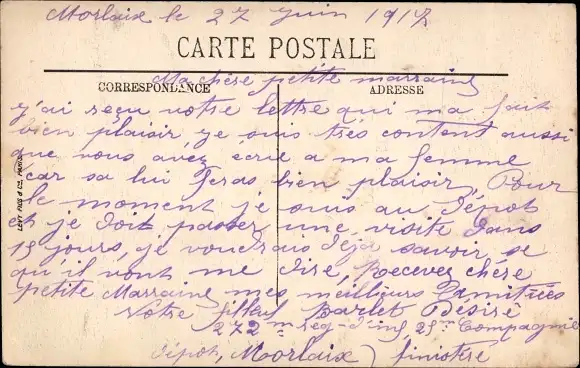 Morlaix le 27 juin 1917
CARTE POSTALE
Ma chère petite marraine
CORRESPONDANCE
ADRESSE
j'ai reçu votre lettre qui ma fait
bien plaisir, je suis très content aussi
que vous avez écrie a ma femme
car sa lui feras bien plaisir, Pour
le moment je suis au dépot
et je doit passer une visite dans
15 jours, je voudrais déja savoir se
qu'il vont me dire, Recevez chère
petite Marraine mes meilleurs amitiées
Votre filleul Barlet Désiré
272me rég-d'inf, 25me Compagnie
dépot, Morlaix) finistère
LÉVY FILS & CIE, PARIS